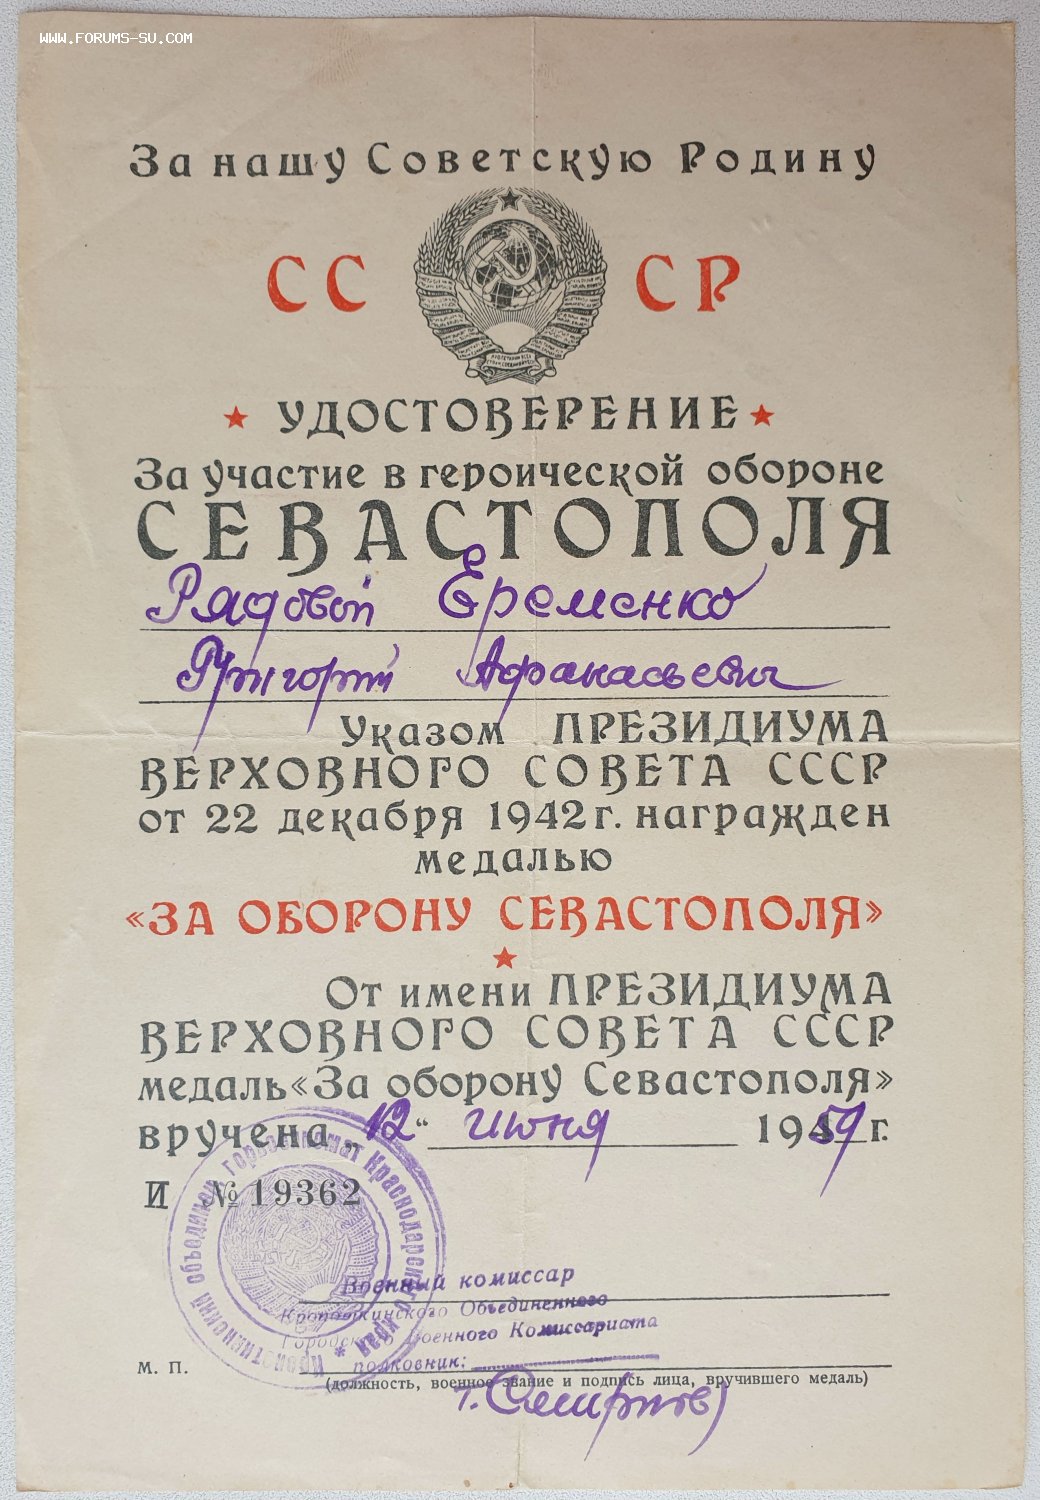 WWW.FORUMS-SU.COM
За нашу Советскую Родину
СС СР
УДОСТОВЕРЕНИЕ
За участие в героической обороне
СЕВАСТОПОЛЯ
Рядовой Еременко
Григорий Афанасьевич
Указом ПРЕЗИДИУМА
ВЕРХОВНОГО СОВЕТА СССР
от 22 декабря 1942 г. награжден
медалью
«ЗА ОБОРОНУ СЕВАСТОПОЛЯ»
От имени ПРЕЗИДИУМА
ВЕРХОВНОГО СОВЕТА СССР
медаль «За оборону Севастополя»
вручена „12“ июня 1959 г.
И № 19362
Кропоткинский объединен горвоенкомат Краснодарского края *
Военный комиссар
Кропоткинского Объединенного
Городского Военного Комиссариата
полковник:
М. П.
(должность, военное звание и подпись лица, вручившего медаль)